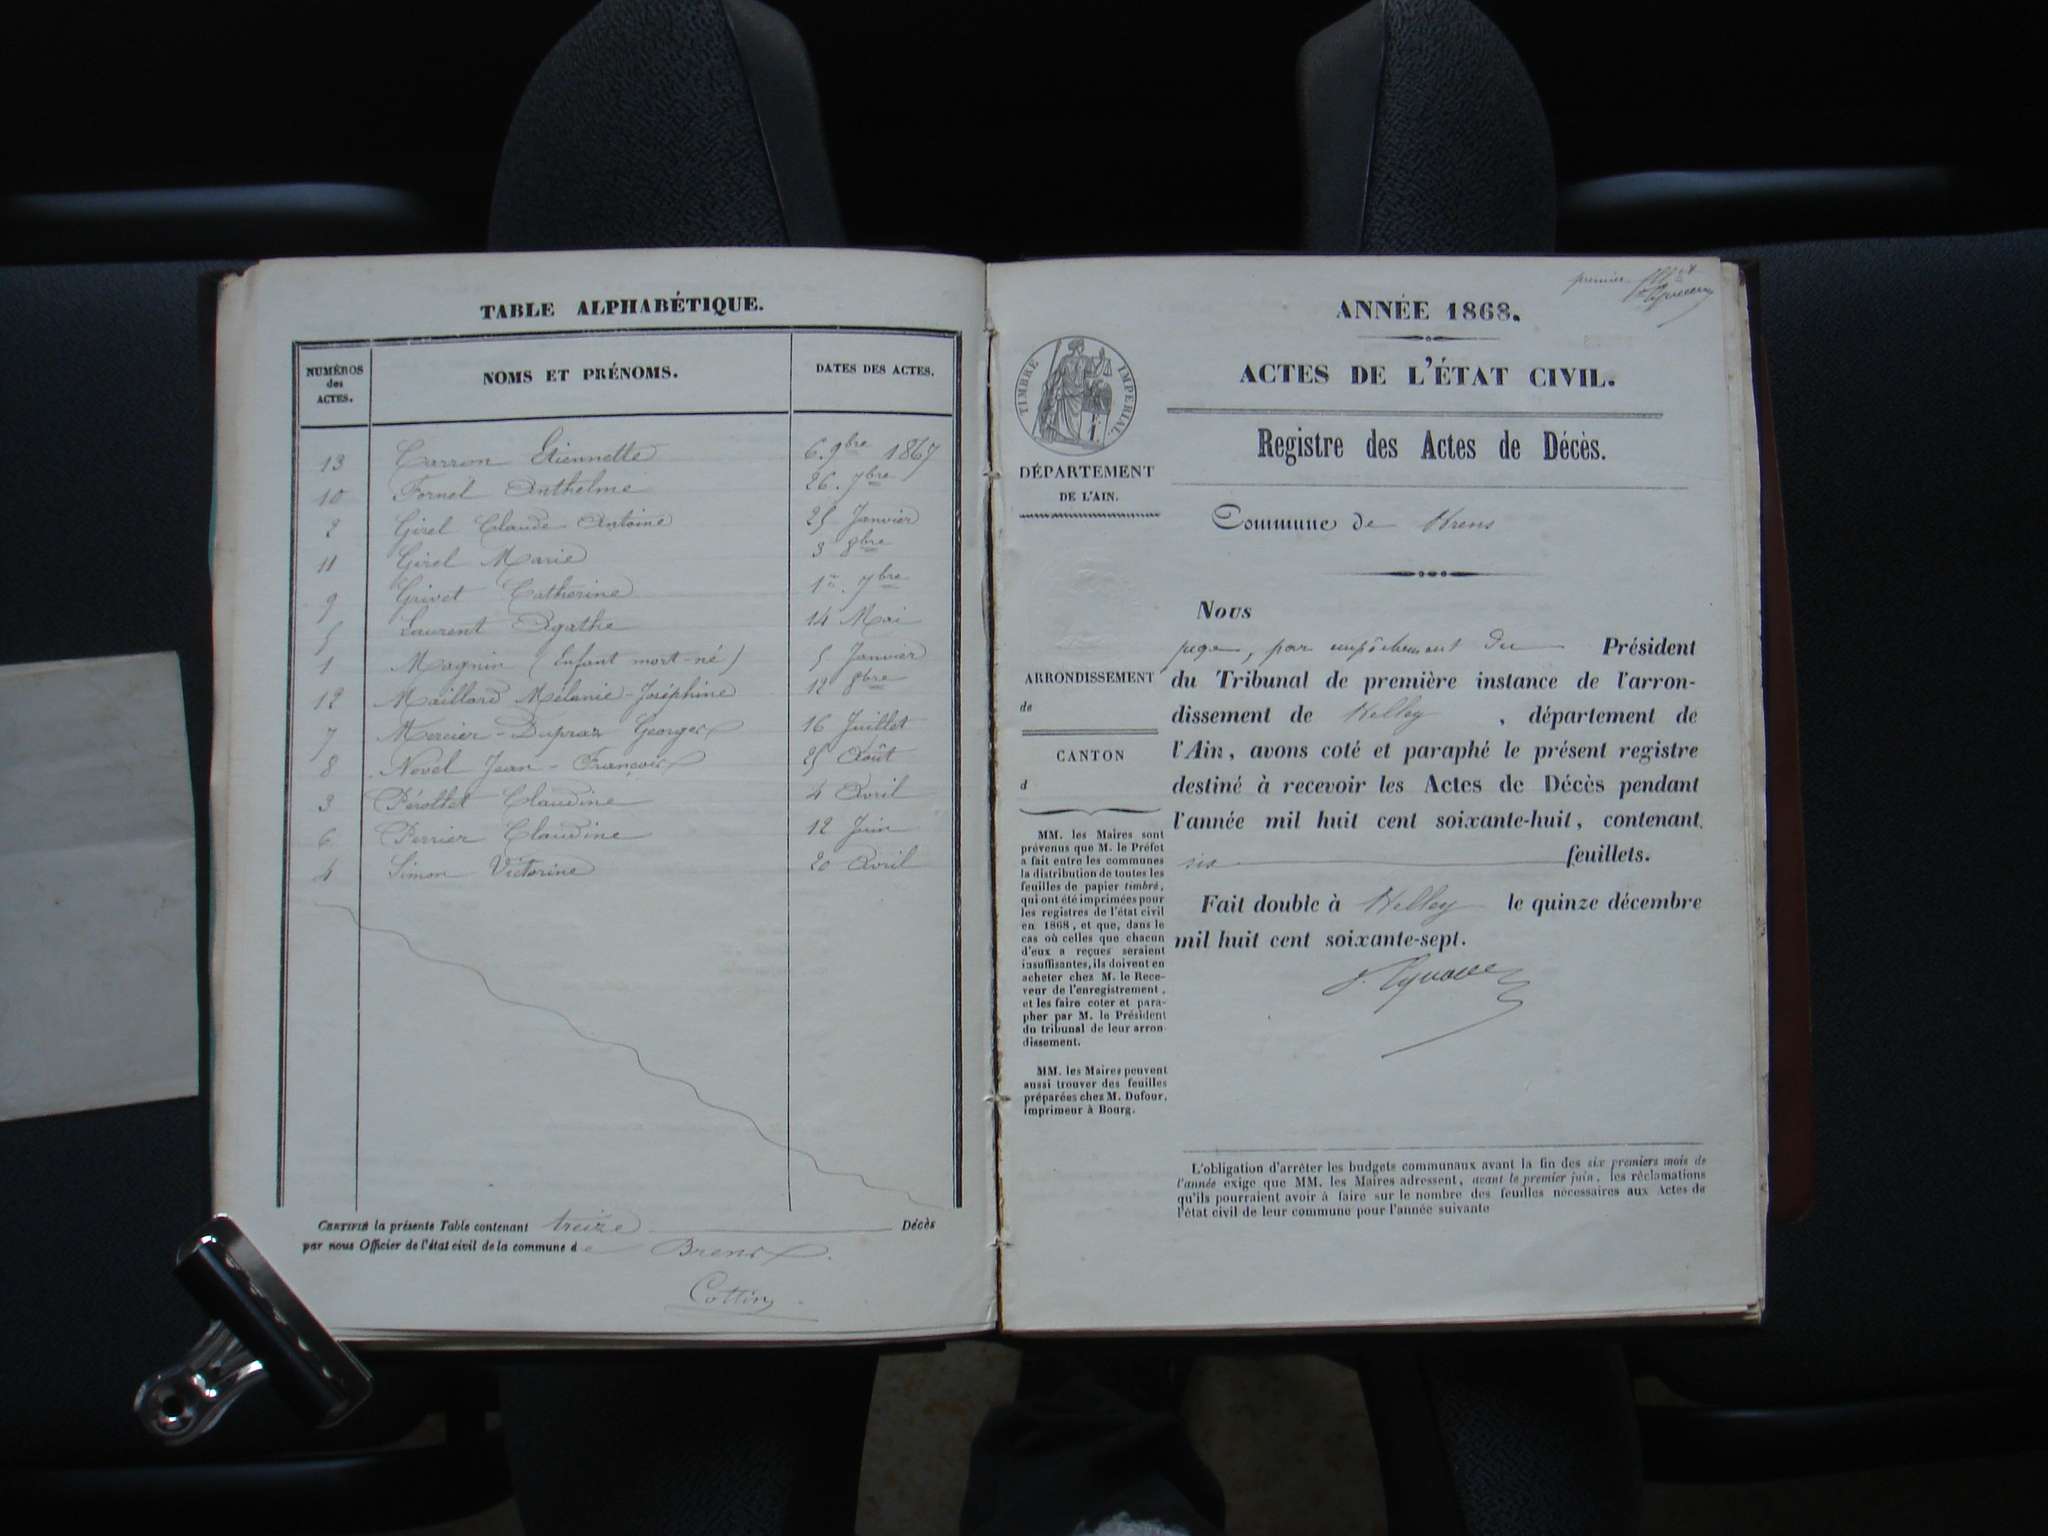 TABLE ALPHABÉTIQUE.
NUMÉROS des ACTES. NOMS ET PRÉNOMS. DATES DES ACTES.
13 Carron Etiennette 6. 9bre 1867
10 Fornel Anthelme 26. 7bre
2 Girel Claude Antoine 25 Janvier
11 Girel Marie 3 8bre
9 Grivet Catherine 1er. 7bre
5 Laurent Agathe 14 Mai
1 Magnin (Enfant mort-né) 5 Janvier
12 Maillard Mélanie-Joséphine 12 8bre
7 Mercier-Dupraz Georges 16 Juillet
8 Novel Jean-François 25 Août
3 Pérollet Claudine 4 Avril
6 Perrier Claudine 12 Juin
4 Simon Victorine 20 Avril
CERTIFIÉ la présente Table contenant treize Décès
par nous Officier de l'état civil de la commune de Brens.
Cottin
premier
ANNÉE 1868.
ACTES DE L'ÉTAT CIVIL.
Registre des Actes de Décès.
TIMBRE IMPÉRIAL.
DÉPARTEMENT
DE L'AIN.
Commune de Brens
Nous
juge, par empêchement du Président
du Tribunal de première instance de l'arron-
dissement de Belley, département de
l'Ain, avons coté et paraphé le présent registre
destiné à recevoir les Actes de Décès pendant
l'année mil huit cent soixante-huit, contenant
six feuillets.
Fait double à Belley le quinze décembre
mil huit cent soixante-sept.
ARRONDISSEMENT
de
CANTON
d
MM. les Maires sont
prévenus que M. le Préfet
a fait entre les communes
la distribution de toutes les
feuilles de papier timbré,
qui ont été imprimées pour
les registres de l'état civil
en 1868, et que, dans le
cas où celles que chacun
d'eux a reçues seraient
insuffisantes, ils doivent en
acheter chez M. le Rece-
veur de l'enregistrement,
et les faire coter et para-
pher par M. le Président
du tribunal de leur arron-
dissement.
MM. les Maires peuvent
aussi trouver des feuilles
préparées chez M. Dufour,
imprimeur à Bourg.
L'obligation d'arrêter les budgets communaux avant la fin des six premiers mois de
l'année exige que MM. les Maires adressent, avant le premier juin, les réclamations
qu'ils pourraient avoir à faire sur le nombre des feuilles nécessaires aux Actes de
l'état civil de leur commune pour l'année suivante